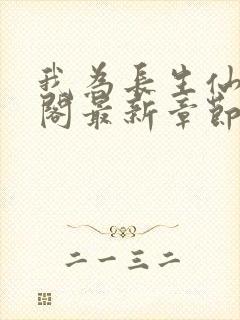 我为長生仙
閣最新章節
二一三二